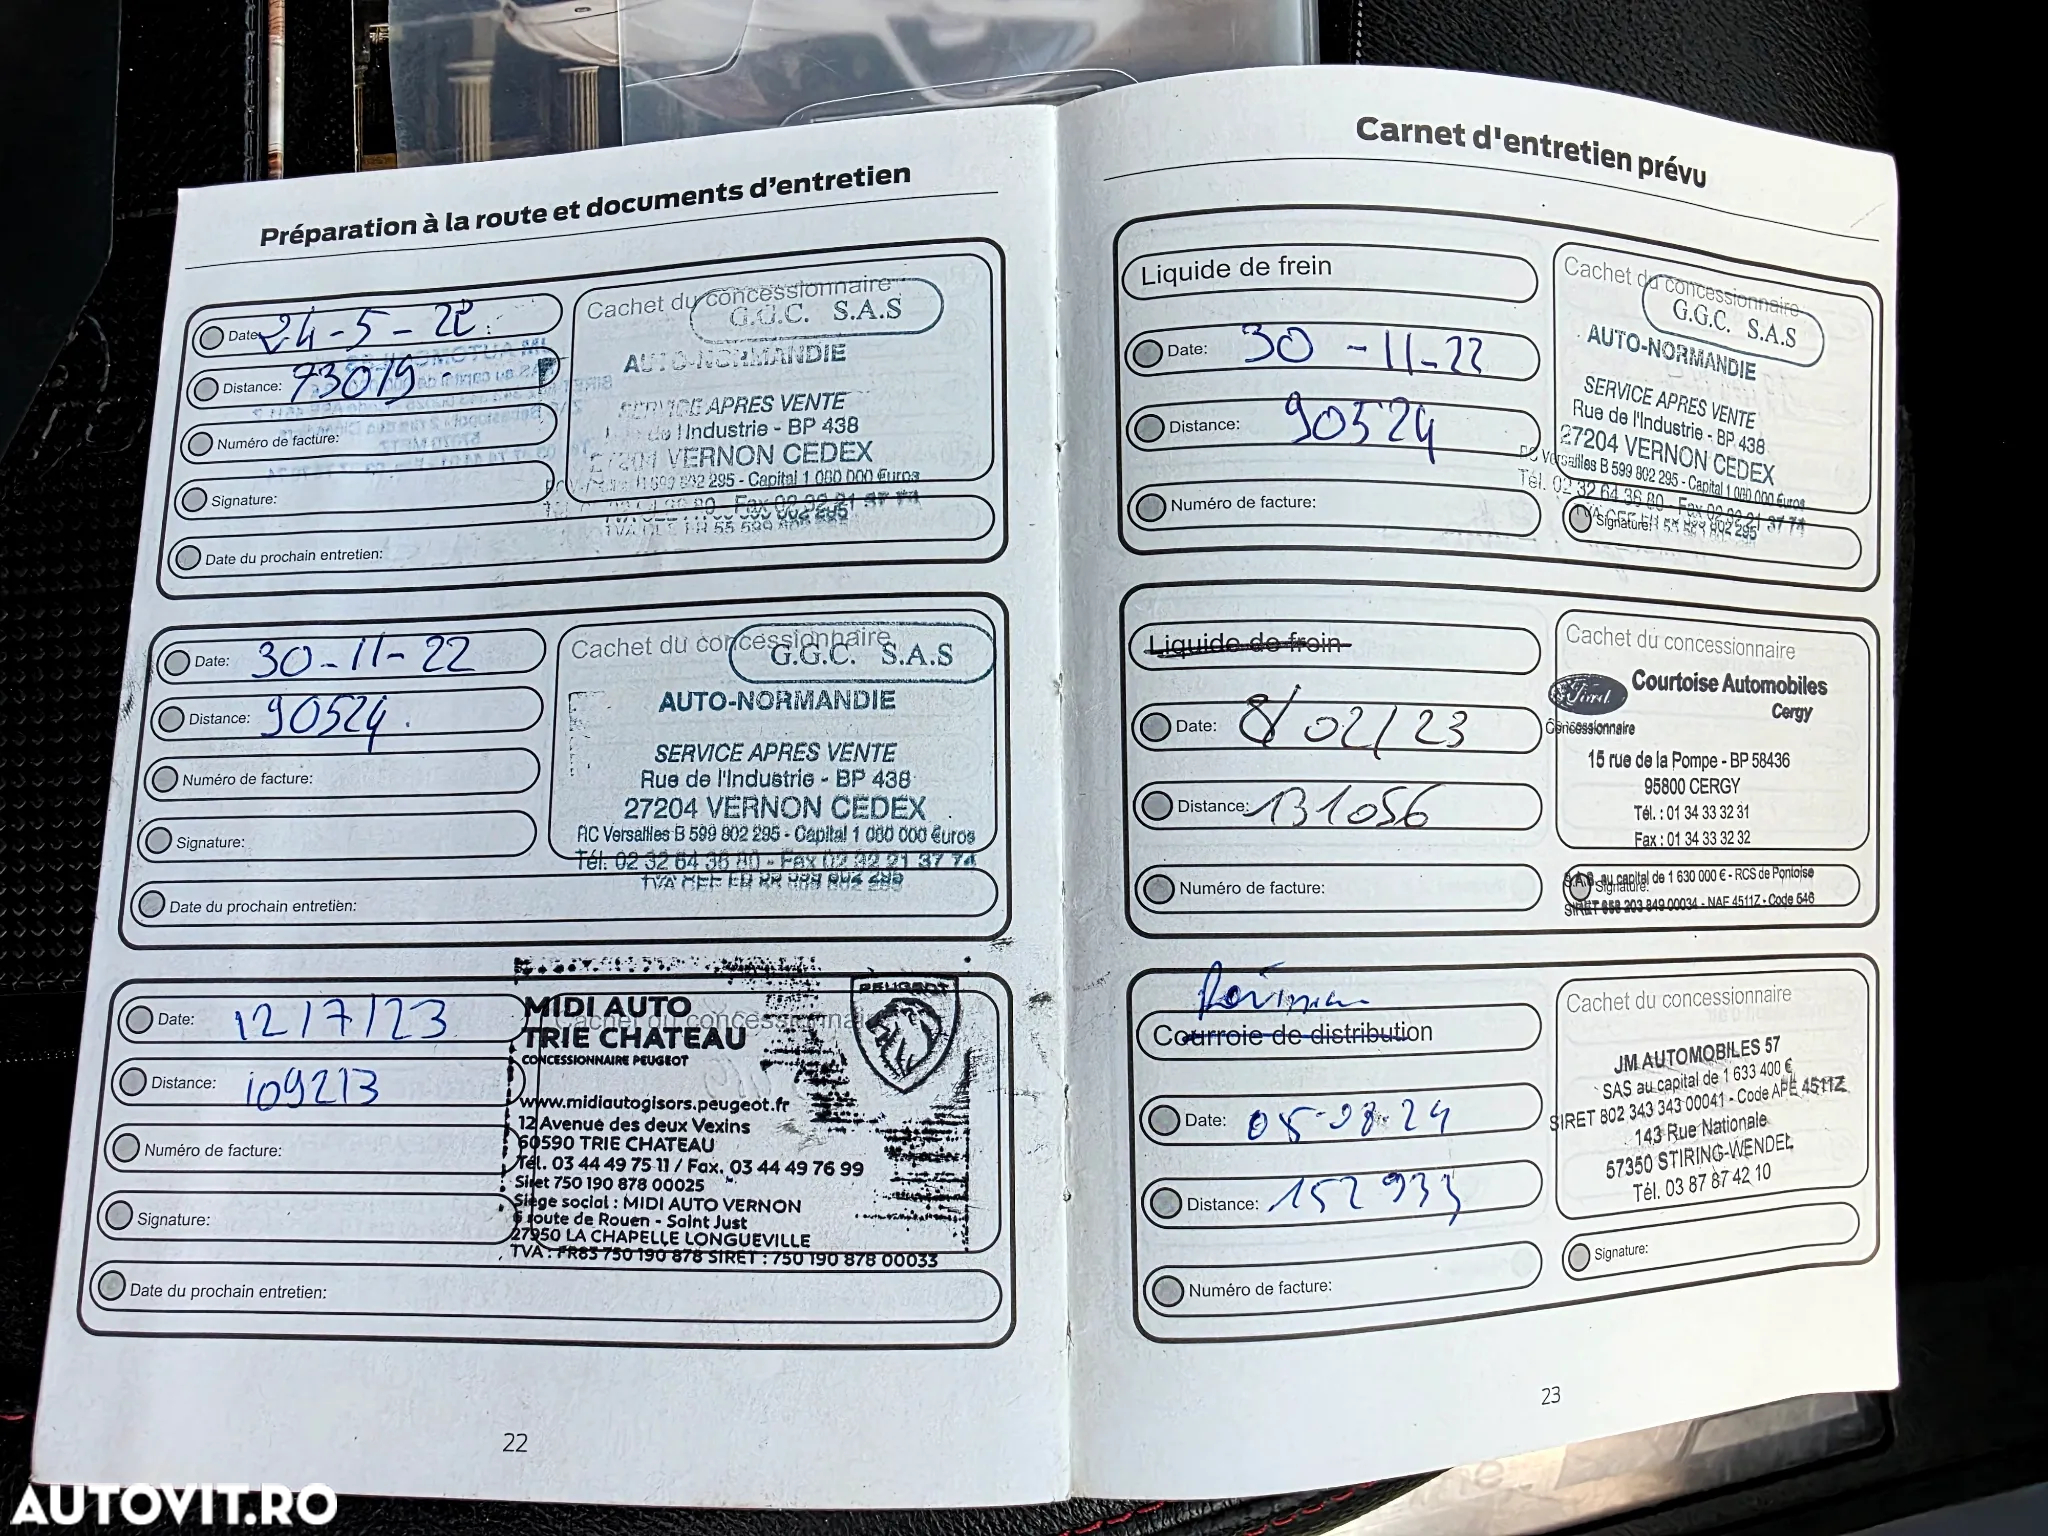 Préparation à la route et documents d'entretien
Date: 24-5-22
Distance: 73019.
Numéro de facture:
Signature:
Date du prochain entretien:
Cachet du concessionnaire
G.G.C. S.A.S
AUTO-NORMANDIE
SERVICE APRES VENTE
Rue de l'Industrie - BP 438
27204 VERNON CEDEX
599 802 295 - Capital 1 000 000 €uros
Date: 30-11-22
Distance: 90524.
Numéro de facture:
Signature:
Date du prochain entretien:
Cachet du concessionnaire
G.G.C. S.A.S
AUTO-NORMANDIE
SERVICE APRES VENTE
Rue de l'Industrie - BP 438
27204 VERNON CEDEX
RC Versailles B 599 802 295 - Capital 1 000 000 €uros
Tél. 02 32 64 36 80 - Fax 02 32 21 37 74
Date: 12/7/23
Distance: 109213
Numéro de facture:
Signature:
Date du prochain entretien:
Cachet du concessionnaire
MIDI AUTO
TRIE CHATEAU
CONCESSIONNAIRE PEUGEOT
PEUGEOT
www.midiautogisors.peugeot.fr
12 Avenue des deux Vexins
60590 TRIE CHATEAU
Tél. 03 44 49 75 11 / Fax. 03 44 49 76 99
Siret 750 190 878 00025
Siège social : MIDI AUTO VERNON
6 route de Rouen - Saint Just
27950 LA CHAPELLE LONGUEVILLE
TVA : FR83 750 190 878 SIRET : 750 190 878 00033
22
Carnet d'entretien prévu
Liquide de frein
Date: 30-11-22
Distance: 90524
Numéro de facture:
Cachet du concessionnaire
G.G.C. S.A.S
AUTO-NORMANDIE
SERVICE APRES VENTE
Rue de l'Industrie - BP 438
27204 VERNON CEDEX
RC Versailles B 599 802 295 - Capital 1 000 000 €uros
Tél. 02 32 64 36 80 - Fax 02 32 21 37 74
Signature:
Liquide de frein
Date: 8/02/23
Distance: 131056
Numéro de facture:
Cachet du concessionnaire
Ford
Courtoise Automobiles
Cergy
Concessionnaire
15 rue de la Pompe - BP 58436
95800 CERGY
Tél. : 01 34 33 32 31
Fax : 01 34 33 32 32
S.A.S. au capital de 1 630 000 € - RCS de Pontoise
Signature:
SIRET 858 203 849 00034 - NAF 4511Z - Code 546
Courroie de distribution
Date: 05-08-24
Distance: 152933
Numéro de facture:
Cachet du concessionnaire
JM AUTOMOBILES 57
SAS au capital de 1 633 400 €
SIRET 802 343 343 00041 - Code APE 4511Z
143 Rue Nationale
57350 STIRING-WENDEL
Tél. 03 87 87 42 10
Signature:
23
AUTOVIT.RO